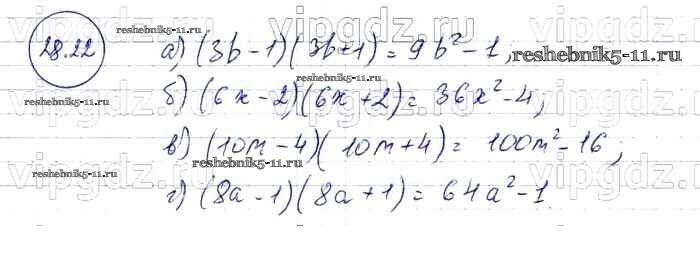 28.22
а) (3b-1)(3b+1) = 9b²-1,
б) (6x-2)(6x+2) = 36x²-4;
в) (10m-4)(10m+4) = 100m²-16;
г) (8a-1)(8a+1) = 64a²-1.
reshebnik5-11.ru
reshebnik5-11.ru
reshebnik5-11.ru
reshebnik5-11.ru
reshebnik5-11.ru
reshebnik5-11.ru
vipgdz.ru
vipgdz.ru
vipgdz.ru